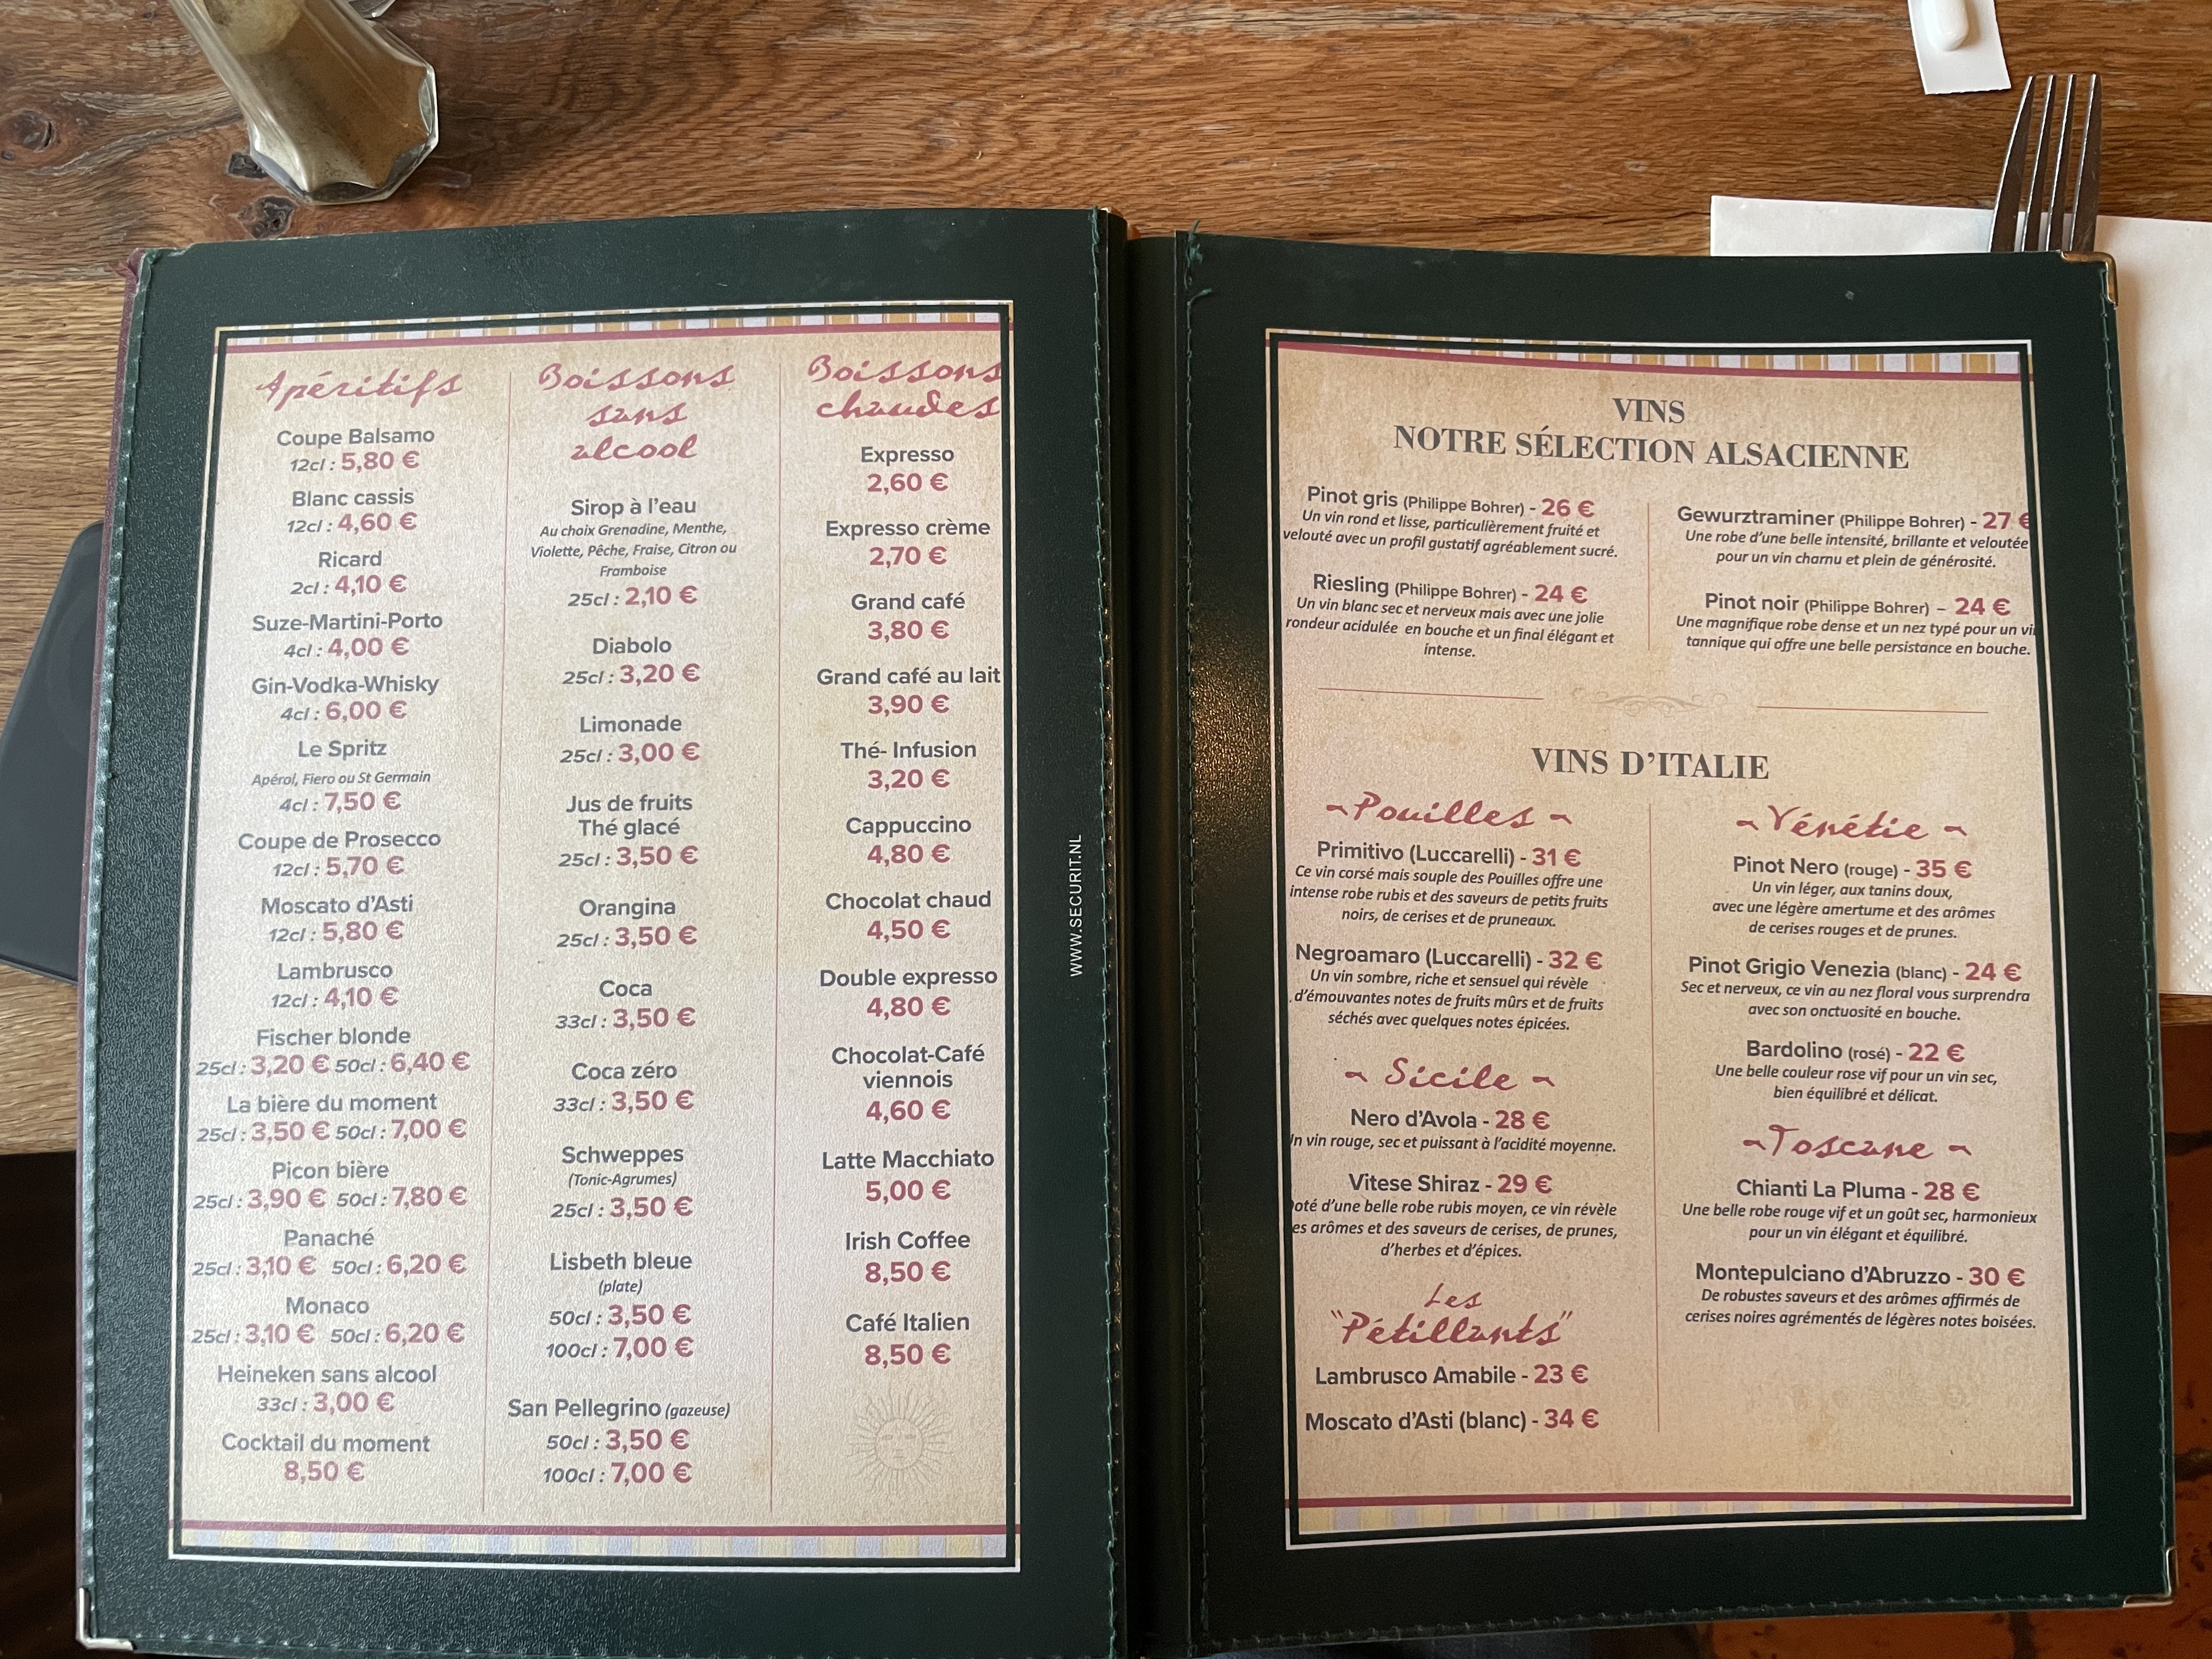 Apéritifs
Coupe Balsamo
12cl : 5,80 €
Blanc cassis
12cl : 4,60 €
Ricard
2cl : 4,10 €
Suze-Martini-Porto
4cl : 4,00 €
Gin-Vodka-Whisky
4cl : 6,00 €
Le Spritz
Apérol, Fiero ou St Germain
4cl : 7,50 €
Coupe de Prosecco
12cl : 5,70 €
Moscato d'Asti
12cl : 5,80 €
Lambrusco
12cl : 4,10 €
Fischer blonde
25cl : 3,20 € 50cl : 6,40 €
La bière du moment
25cl : 3,50 € 50cl : 7,00 €
Picon bière
25cl : 3,90 € 50cl : 7,80 €
Panaché
25cl : 3,10 € 50cl : 6,20 €
Monaco
25cl : 3,10 € 50cl : 6,20 €
Heineken sans alcool
33cl : 3,00 €
Cocktail du moment
8,50 €
Boissons
sans
alcool
Sirop à l'eau
Au choix Grenadine, Menthe,
Violette, Pêche, Fraise, Citron ou
Framboise
25cl : 2,10 €
Diabolo
25cl : 3,20 €
Limonade
25cl : 3,00 €
Jus de fruits
Thé glacé
25cl : 3,50 €
Orangina
25cl : 3,50 €
Coca
33cl : 3,50 €
Coca zéro
33cl : 3,50 €
Schweppes
(Tonic-Agrumes)
25cl : 3,50 €
Lisbeth bleue
(plate)
50cl : 3,50 €
100cl : 7,00 €
San Pellegrino (gazeuse)
50cl : 3,50 €
100cl : 7,00 €
Boissons
chaudes
Expresso
2,60 €
Expresso crème
2,70 €
Grand café
3,80 €
Grand café au lait
3,90 €
Thé- Infusion
3,20 €
Cappuccino
4,80 €
Chocolat chaud
4,50 €
Double expresso
4,80 €
Chocolat-Café
viennois
4,60 €
Latte Macchiato
5,00 €
Irish Coffee
8,50 €
Café Italien
8,50 €
WWW.SECURIT.NL
VINS
NOTRE SÉLECTION ALSACIENNE
Pinot gris (Philippe Bohrer) - 26 €
Un vin rond et lisse, particulièrement fruité et
velouté avec un profil gustatif agréablement sucré.
Riesling (Philippe Bohrer) - 24 €
Un vin blanc sec et nerveux mais avec une jolie
rondeur acidulée en bouche et un final élégant et
intense.
Gewurztraminer (Philippe Bohrer) - 27 €
Une robe d'une belle intensité, brillante et veloutée
pour un vin charnu et plein de générosité.
Pinot noir (Philippe Bohrer) – 24 €
Une magnifique robe dense et un nez typé pour un vin
tannique qui offre une belle persistance en bouche.
VINS D'ITALIE
~Pouilles ~
Primitivo (Luccarelli) - 31 €
Ce vin corsé mais souple des Pouilles offre une
intense robe rubis et des saveurs de petits fruits
noirs, de cerises et de pruneaux.
Negroamaro (Luccarelli) - 32 €
Un vin sombre, riche et sensuel qui révèle
d'émouvantes notes de fruits mûrs et de fruits
séchés avec quelques notes épicées.
~ Sicile ~
Nero d'Avola - 28 €
Un vin rouge, sec et puissant à l'acidité moyenne.
Vitese Shiraz - 29 €
oté d'une belle robe rubis moyen, ce vin révèle
es arômes et des saveurs de cerises, de prunes,
d'herbes et d'épices.
Les
"Pétillants"
Lambrusco Amabile - 23 €
Moscato d'Asti (blanc) - 34 €
~Vénétie ~
Pinot Nero (rouge) - 35 €
Un vin léger, aux tanins doux,
avec une légère amertume et des arômes
de cerises rouges et de prunes.
Pinot Grigio Venezia (blanc) - 24 €
Sec et nerveux, ce vin au nez floral vous surprendra
avec son onctuosité en bouche.
Bardolino (rosé) - 22 €
Une belle couleur rose vif pour un vin sec,
bien équilibré et délicat.
~Toscane ~
Chianti La Pluma - 28 €
Une belle robe rouge vif et un goût sec, harmonieux
pour un vin élégant et équilibré.
Montepulciano d'Abruzzo - 30 €
De robustes saveurs et des arômes affirmés de
cerises noires agrémentés de légères notes boisées.